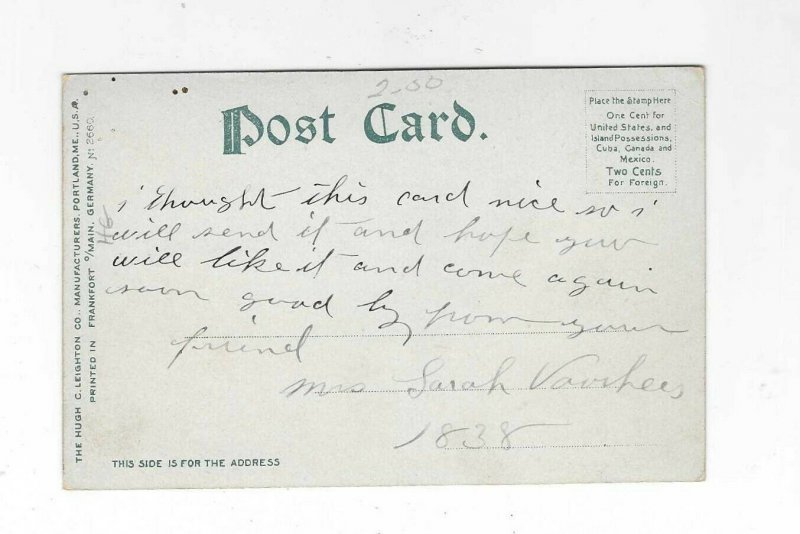 2-00
Post Card.
Place the Stamp Here
One Cent for
United States, and
Island Possessions,
Cuba, Canada and
Mexico.
Two Cents
For Foreign.
i thought this card nice so i
will send it and hope you
will like it and come again
soon good by from your
friend
Mrs Sarah Voorhees
1838
THIS SIDE IS FOR THE ADDRESS
THE HUGH C. LEIGHTON CO., MANUFACTURERS, PORTLAND, ME., U.S.A.
PRINTED IN FRANKFORT O/MAIN, GERMANY. No 2660.